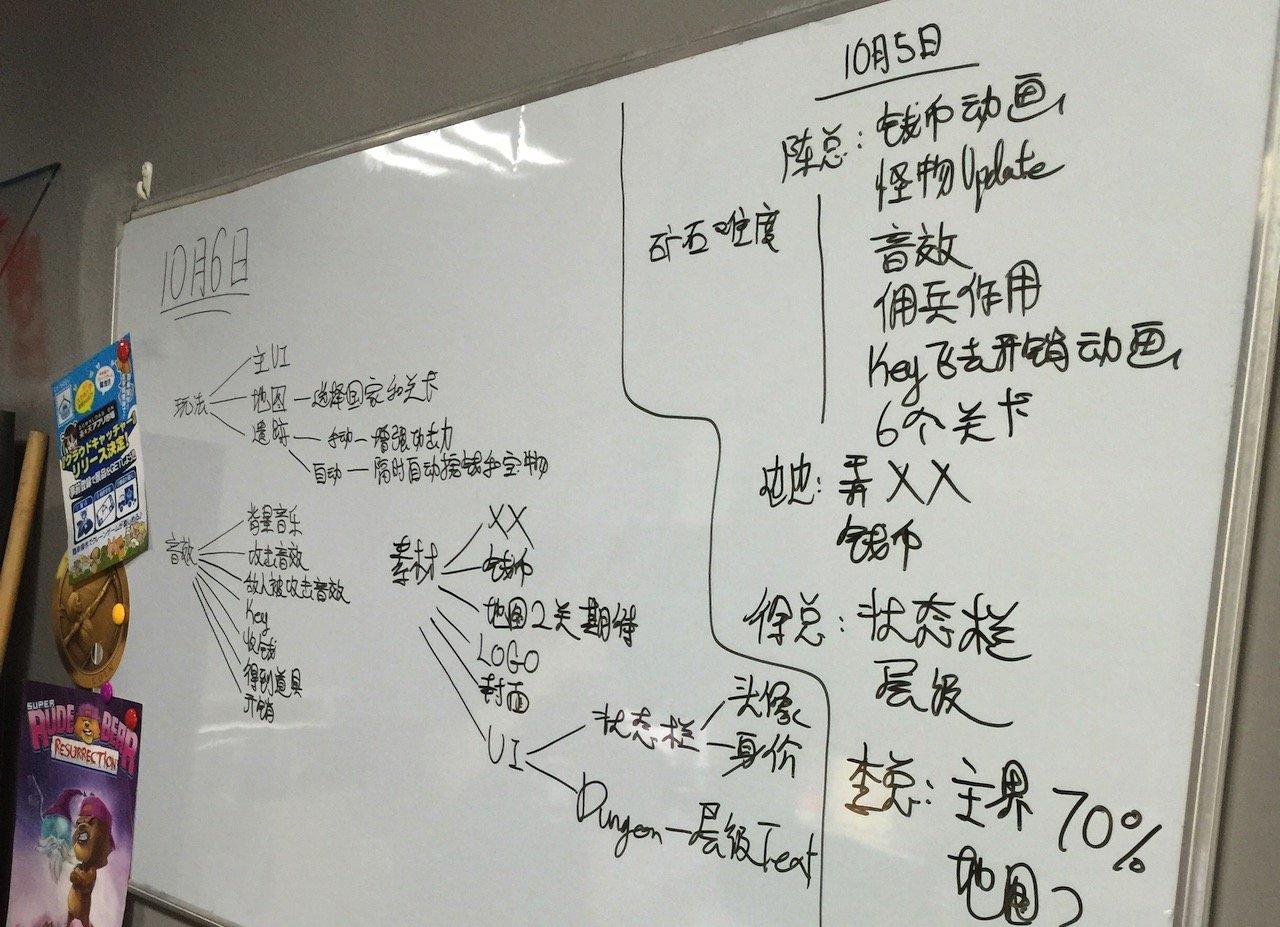 10月6日
玩法
主UI
地图 — 选择国家和关卡
遗跡 — 手动 — 增强攻击力
自动 — 隔时自动 钱和宝物
音效
背景音乐
攻击音效
敌人被攻击音效
Key
收钱
得到道具
开销
素材
XX
钱币
地图2关期待
LOGO
封面
UI
状态栏
头像
身价
Dungeon — 层级Text
10月5日
矿石难度
陈总: 钱币动画
怪物Update
音效
佣兵作用
Key飞去开销动画
6个关卡
地地: 弄XX
钱币
徐总: 状态栏
层级
李总: 主界 70%
地图
SUPER
RUDE BEAR
RESURRECTION
クラウドキャッチャー
リリース決定!